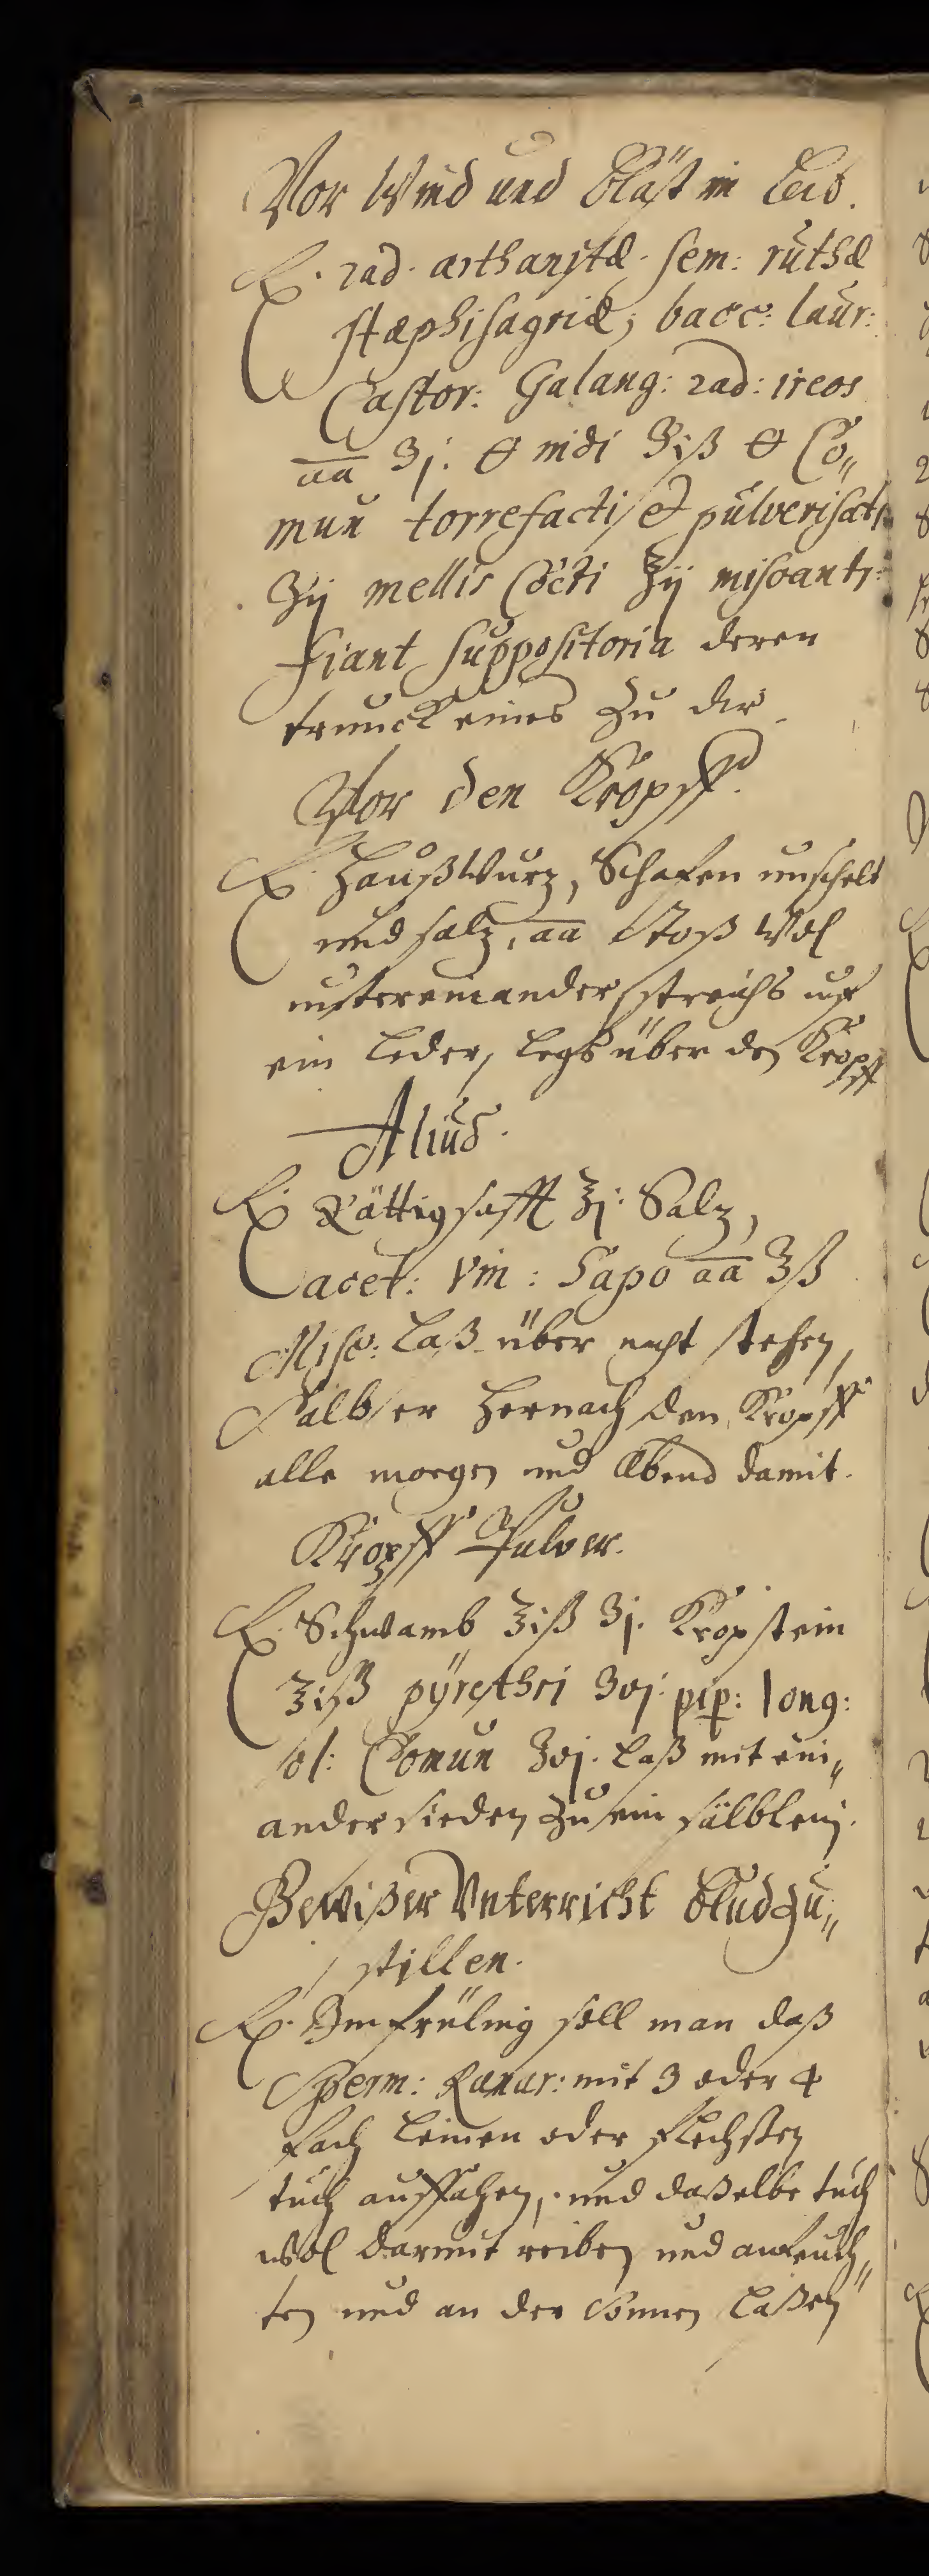 Vor Wind und Bläst im Leib.
℞. rad. arthanitæ. sem: ruthæ
stæphisagriæ, bacc: laur:
Castor: Galang: rad: ireos
aa ʒj. 🜔 indi ʒiß 🜔 Co„
mun torrefacti et pulverisati
ʒij mellis Cocti ℥ij miscant:
fiant suppositoria deren
trunck eines zu dir.
Vor den Kropff.
℞. Haußwurz, Schafen unschelt
und salz, aa Stoß Wol
untereinander, streichs uff
ein Leder, Legs über den Kropff
Aliud.
℞. Rättig safft ℥j: Salz,
acet: Vin: Sapo aa ℥ß
Misc: Laß über nacht stehen,
Salb er hernach den Kropff
alle morgen und Abend damit.
Kropff Pulver.
℞. Schwamb ℥iß ʒj. Kropstein
℥iß pyrethri ʒvj. pip: long:
ol: Comun ʒvj. Laß mit ein„
ander sieden zu ein sälblein.
Gewißer Unterricht blud zu„
stillen.
℞. Im früling soll man daß
Sperm: Ranar: mit 3 oder 4
fach Leinen oder flechßen
tuch auffahen, und daßelbe tuch
wol darmit reiben und anfeuch„
ten und an der Sonnen Laßen